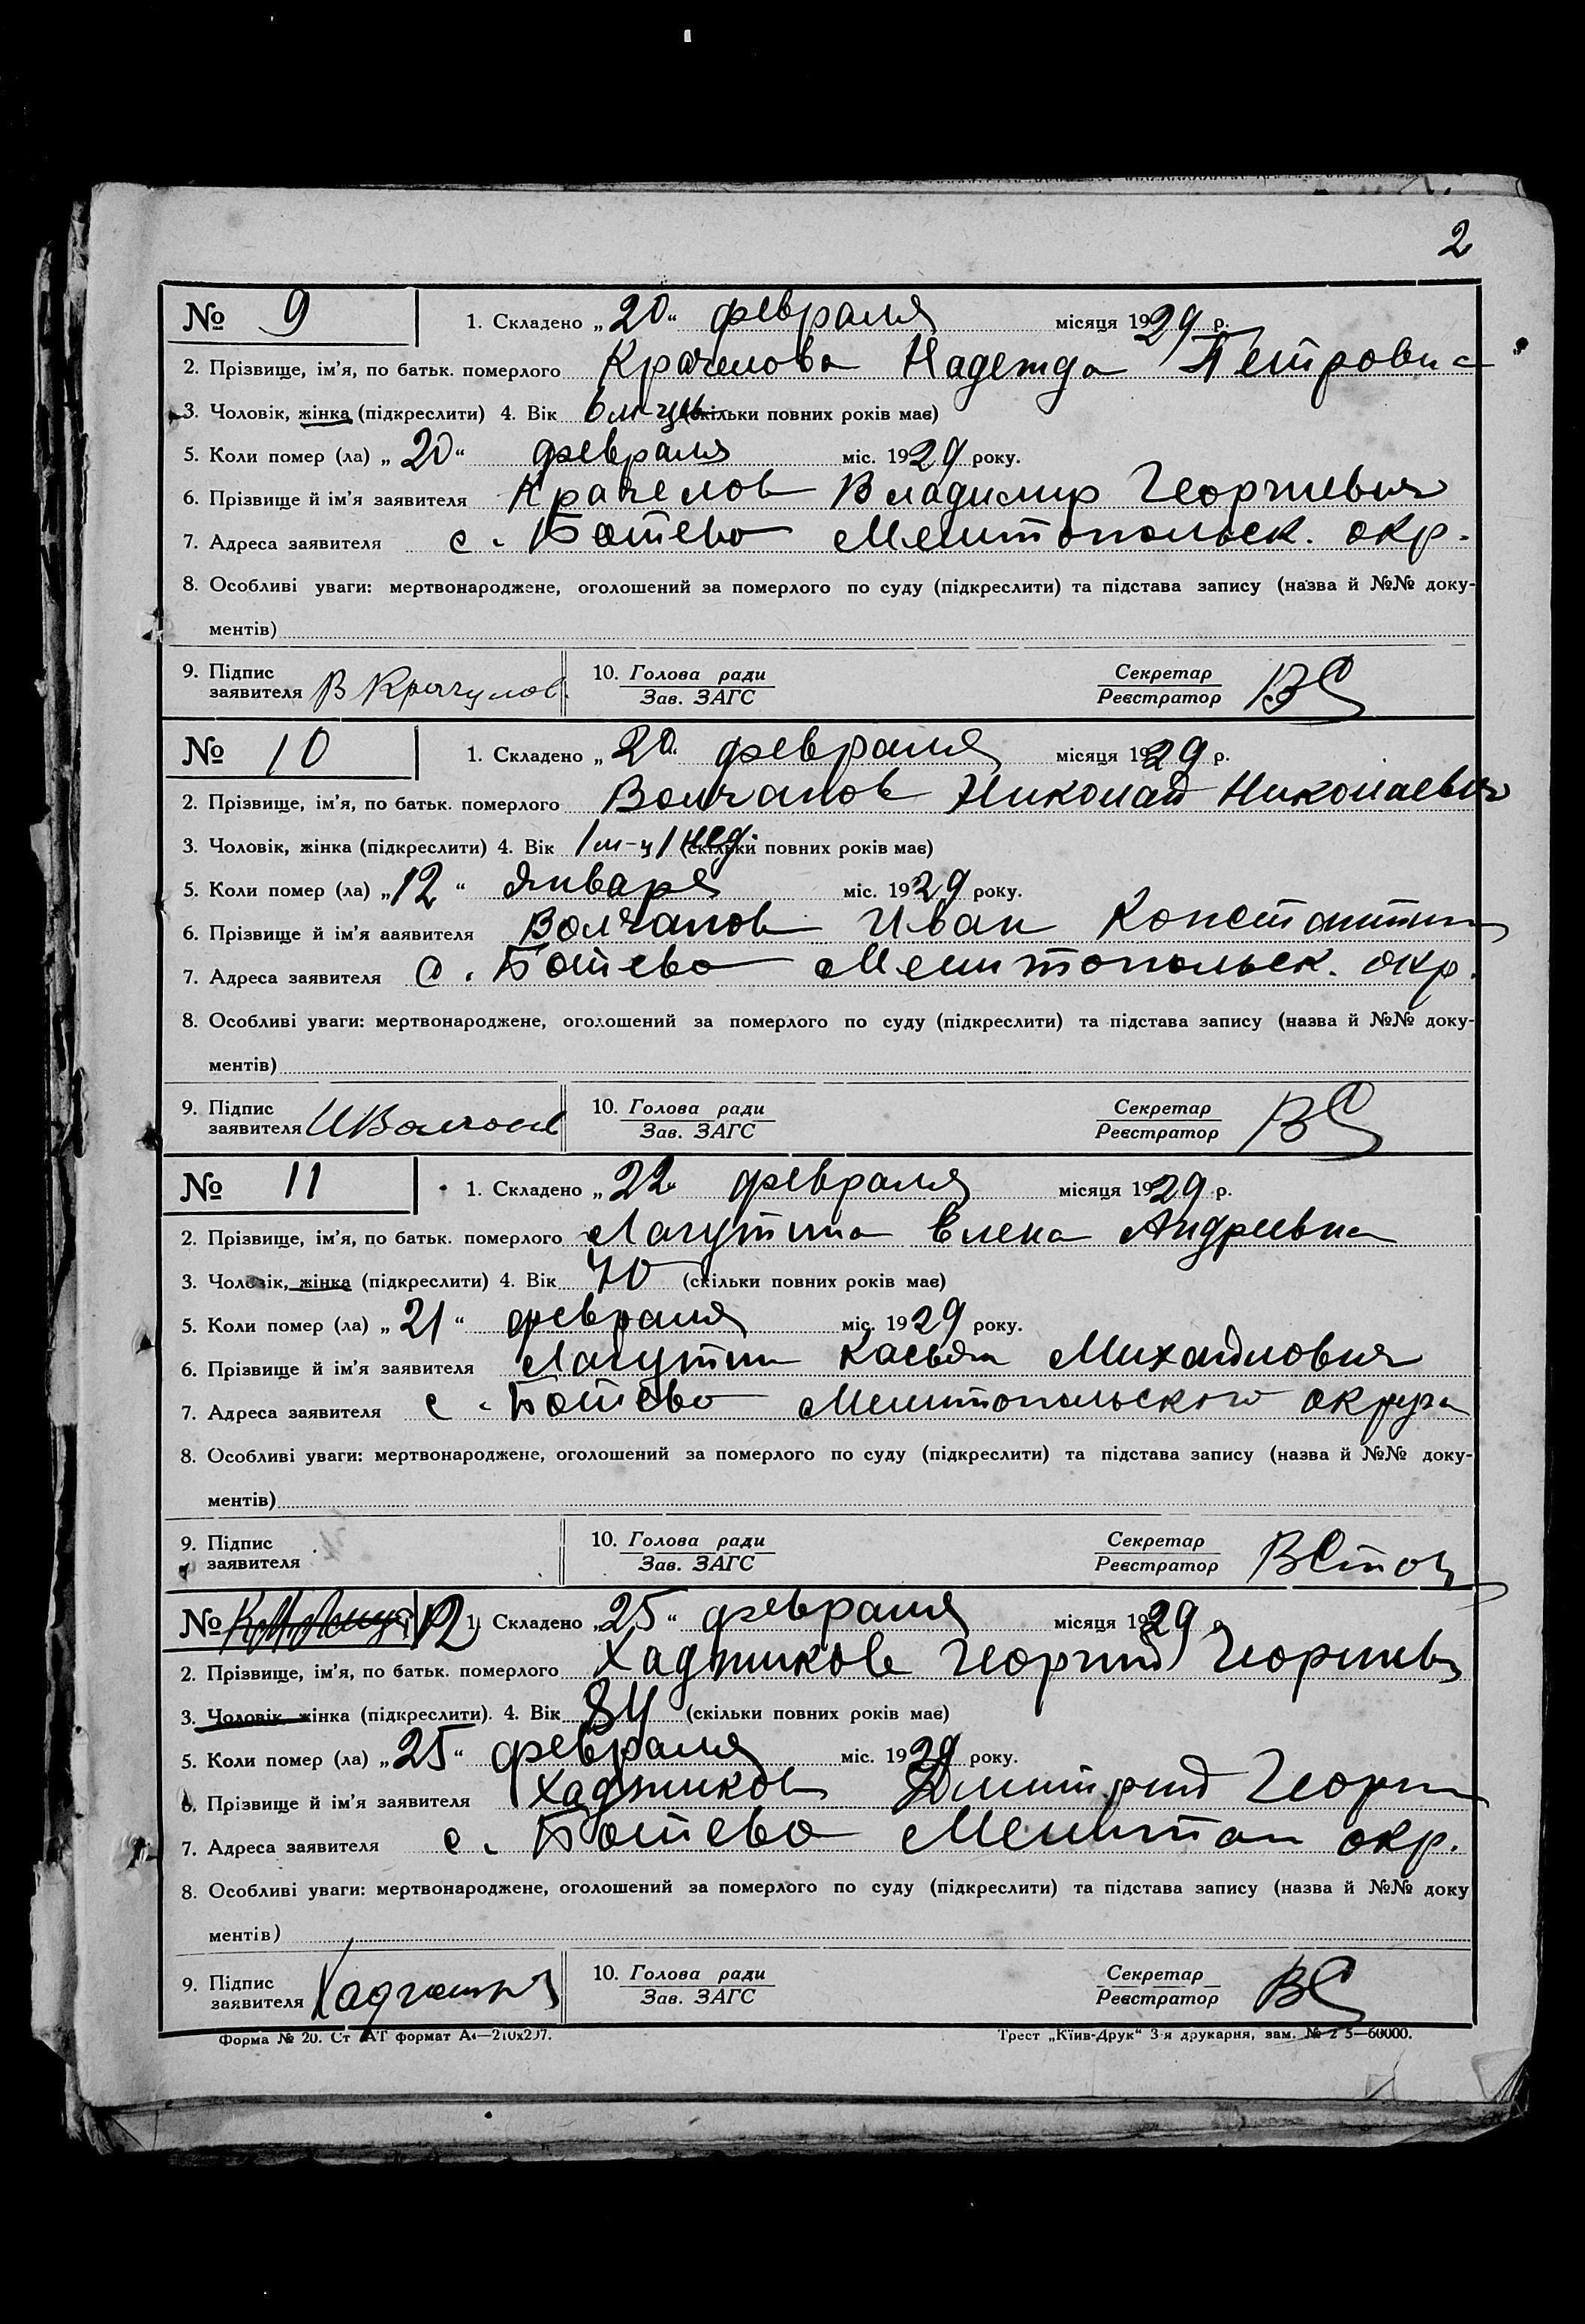 2
№ 9 1. Складено „20“ февраля місяця 1929 р.
2. Прізвище, ім’я, по батьк. померлого Крачелова Надежда Петровна
3. Чоловік, жінка (підкреслити) 4. Вік 6 м-цев (скільки повних років має)
5. Коли помер (ла) „20“ февраля міс. 1929 року.
6. Прізвище й ім’я заявителя Крачелов Владимир Георгиевич
7. Адреса заявителя с. Ботево Мелитопольск. окр.
8. Особливі уваги: мертвонароджене, оголошений за померлого по суду (підкреслити) та підстава запису (назва й №№ доку-
ментів)
9. Підпис заявителя В Крачулов 10. Голова ради Секретар ВС
Зав. ЗАГС Реєстратор
№ 10 1. Складено „20“ февраля місяця 1929 р.
2. Прізвище, ім’я, по батьк. померлого Волчанов Николай Николаевич
3. Чоловік, жінка (підкреслити) 4. Вік 1 м-ц 1 нед. (скільки повних років має)
5. Коли помер (ла) „12“ января міс. 1929 року.
6. Прізвище й ім’я ааявителя Волчанов Иван Константин
7. Адреса заявителя с. Ботево Мелитопольск. окр.
8. Особливі уваги: мертвонароджене, оголошений за померлого по суду (підкреслити) та підстава запису (назва й №№ доку-
ментів)
9. Підпис заявителя ИВолчанов 10. Голова ради Секретар ВС
Зав. ЗАГС Реєстратор
№ 11 1. Складено „22 февраля місяця 1929 р.
2. Прізвище, ім’я, по батьк. померлого Лагутина Елена Андреевна
3. Чоловік, жінка (підкреслити) 4. Вік 70 (скільки повних років має)
5. Коли помер (ла) „21“ февраля міс. 1929 року.
6. Прізвище й ім’я заявителя Лагутин Касьян Михайлович
7. Адреса заявителя с. Ботево Мелитопольского округа
8. Особливі уваги: мертвонароджене, оголошений за померлого по суду (підкреслити) та підстава запису (назва й №№ доку-
ментів)
9. Підпис заявителя 10. Голова ради Секретар
Зав. ЗАГС Реєстратор
№ 12 1. Складено „25“ февраля місяця 1929 р.
2. Прізвище, ім’я, по батьк. померлого Хаджиков Георгий Георгиев
3. Чоловік, жінка (підкреслити). 4. Вік 84 (скільки повних років має)
5. Коли помер (ла) „25“ февраля міс. 1929 року.
6. Прізвище й ім’я заявителя Хаджиков Дмитрий Георги
7. Адреса заявителя с. Ботево Мелитоп окр.
8. Особливі уваги: мертвонароджене, оголошений за померлого по суду (підкреслити) та підстава запису (назва й №№ доку
ментів)
9. Підпис заявителя 10. Голова ради Секретар ВС
Зав. ЗАГС Реєстратор
Форма № 20. Ст АТ формат А4—210х297. Трест „Київ-Друк“ 3-я друкарня, зам. № 5—60000.